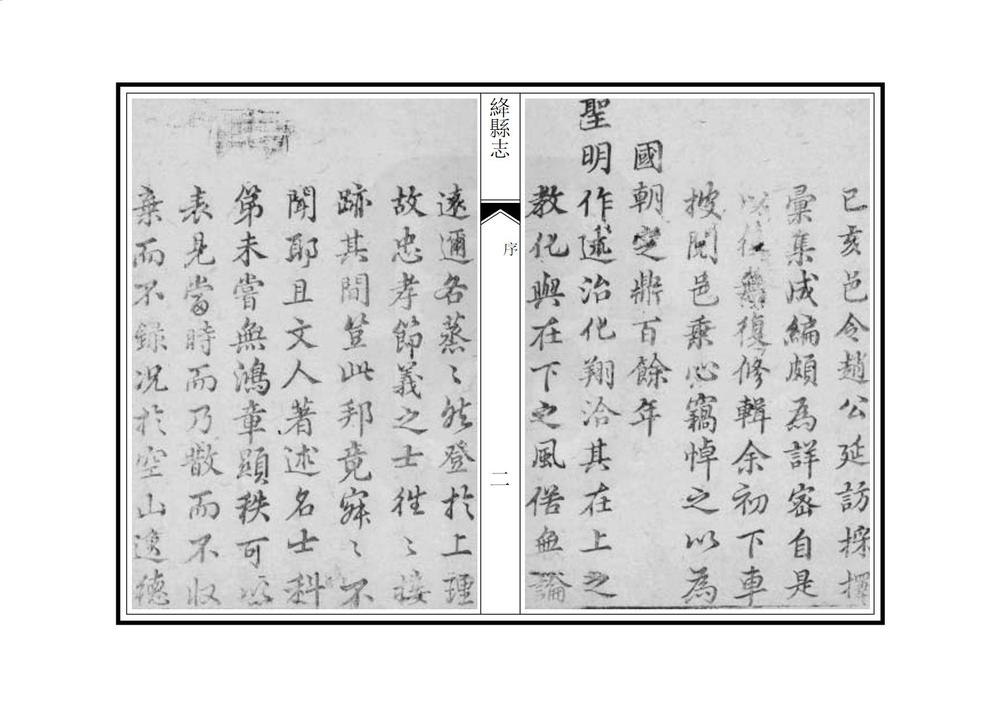 己亥邑令趙公延訪採擇
彙集成編頗為詳密自是
以後無復修輯余初下車
披閱邑乗心竊悼之以為
國朝定鼎百餘年
聖明作述治化翔洽其在上之
教化與在下之風俗無論
絳縣志
序
二
遠邇各蒸〻然登於上理
故忠孝節義之士徃〻接
跡其間豈此邦竟寂〻不
聞耶且文人著述名士科
第未嘗無鴻章顯秩可以
表見當時而乃散而不収
棄而不録况於空山邃德